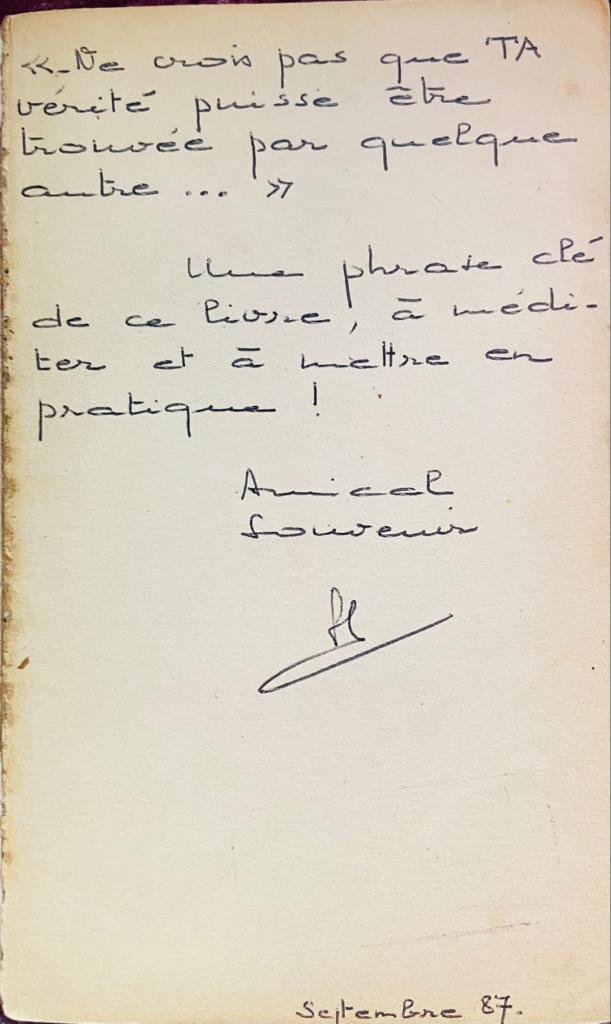 «-Ne crois pas que TA
vérité puisse être
trouvée par quelque
autre ... »
Une phrase clé
de ce livre, à médi-
ter et à mettre en
pratique !
Amical
Souvenir
Septembre 87.